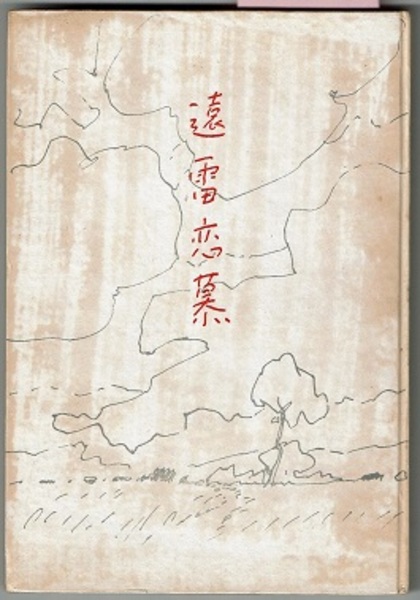 遠雷恋慕